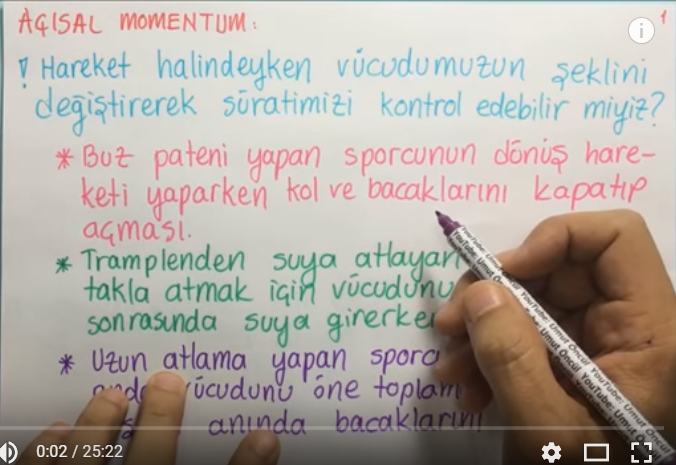 AÇISAL MOMENTUM:
1
! Hareket halindeyken vücudumuzun şeklini
değiştirerek süratimizi kontrol edebilir miyiz?
* Buz pateni yapan sporcunun dönüş hare-
keti yaparken kol ve bacaklarını kapatıp
açması.
* Tramplenden suya atlayan
takla atmak için vücudunu
sonrasında suya girerken
* Uzun atlama yapan
vücudunu öne
anında bacaklarını
YouTube: Umut Öncül YouTube: Umut Öncül
0:02 / 25:22